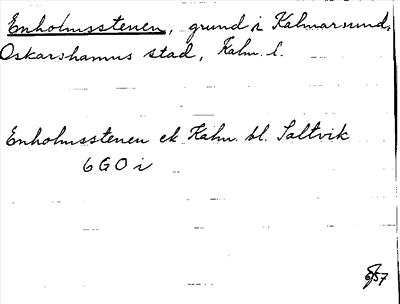 Enholmsstenen, grund i Kalmarsund,
Oskarshamns stad, Kalm. l.
Enholmsstenen ek Kalm. bl. Saltvik
6 G O i